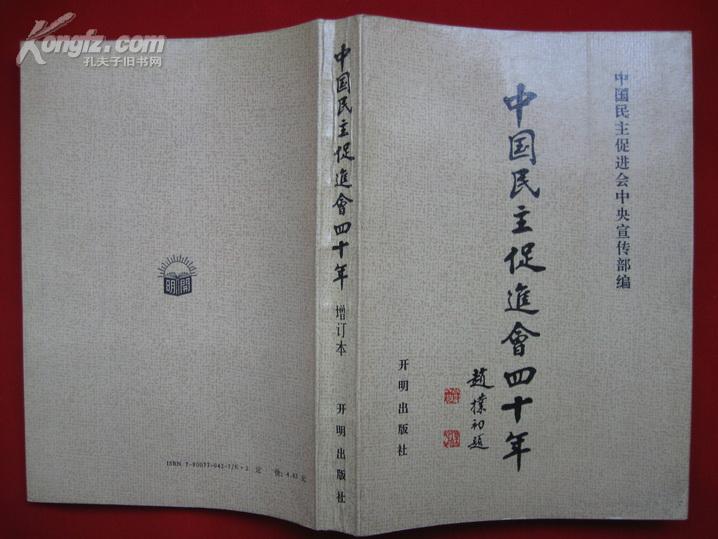 Kongfz.com
孔夫子旧书网
中国民主促进会中央宣传部编
中国民主促進會四十年
趙樸初题
开明出版社
中国民主促進會四十年
增订本
开明出版社
開明
ISBN 7-80077-042-7/K·2 定 价：4.45 元